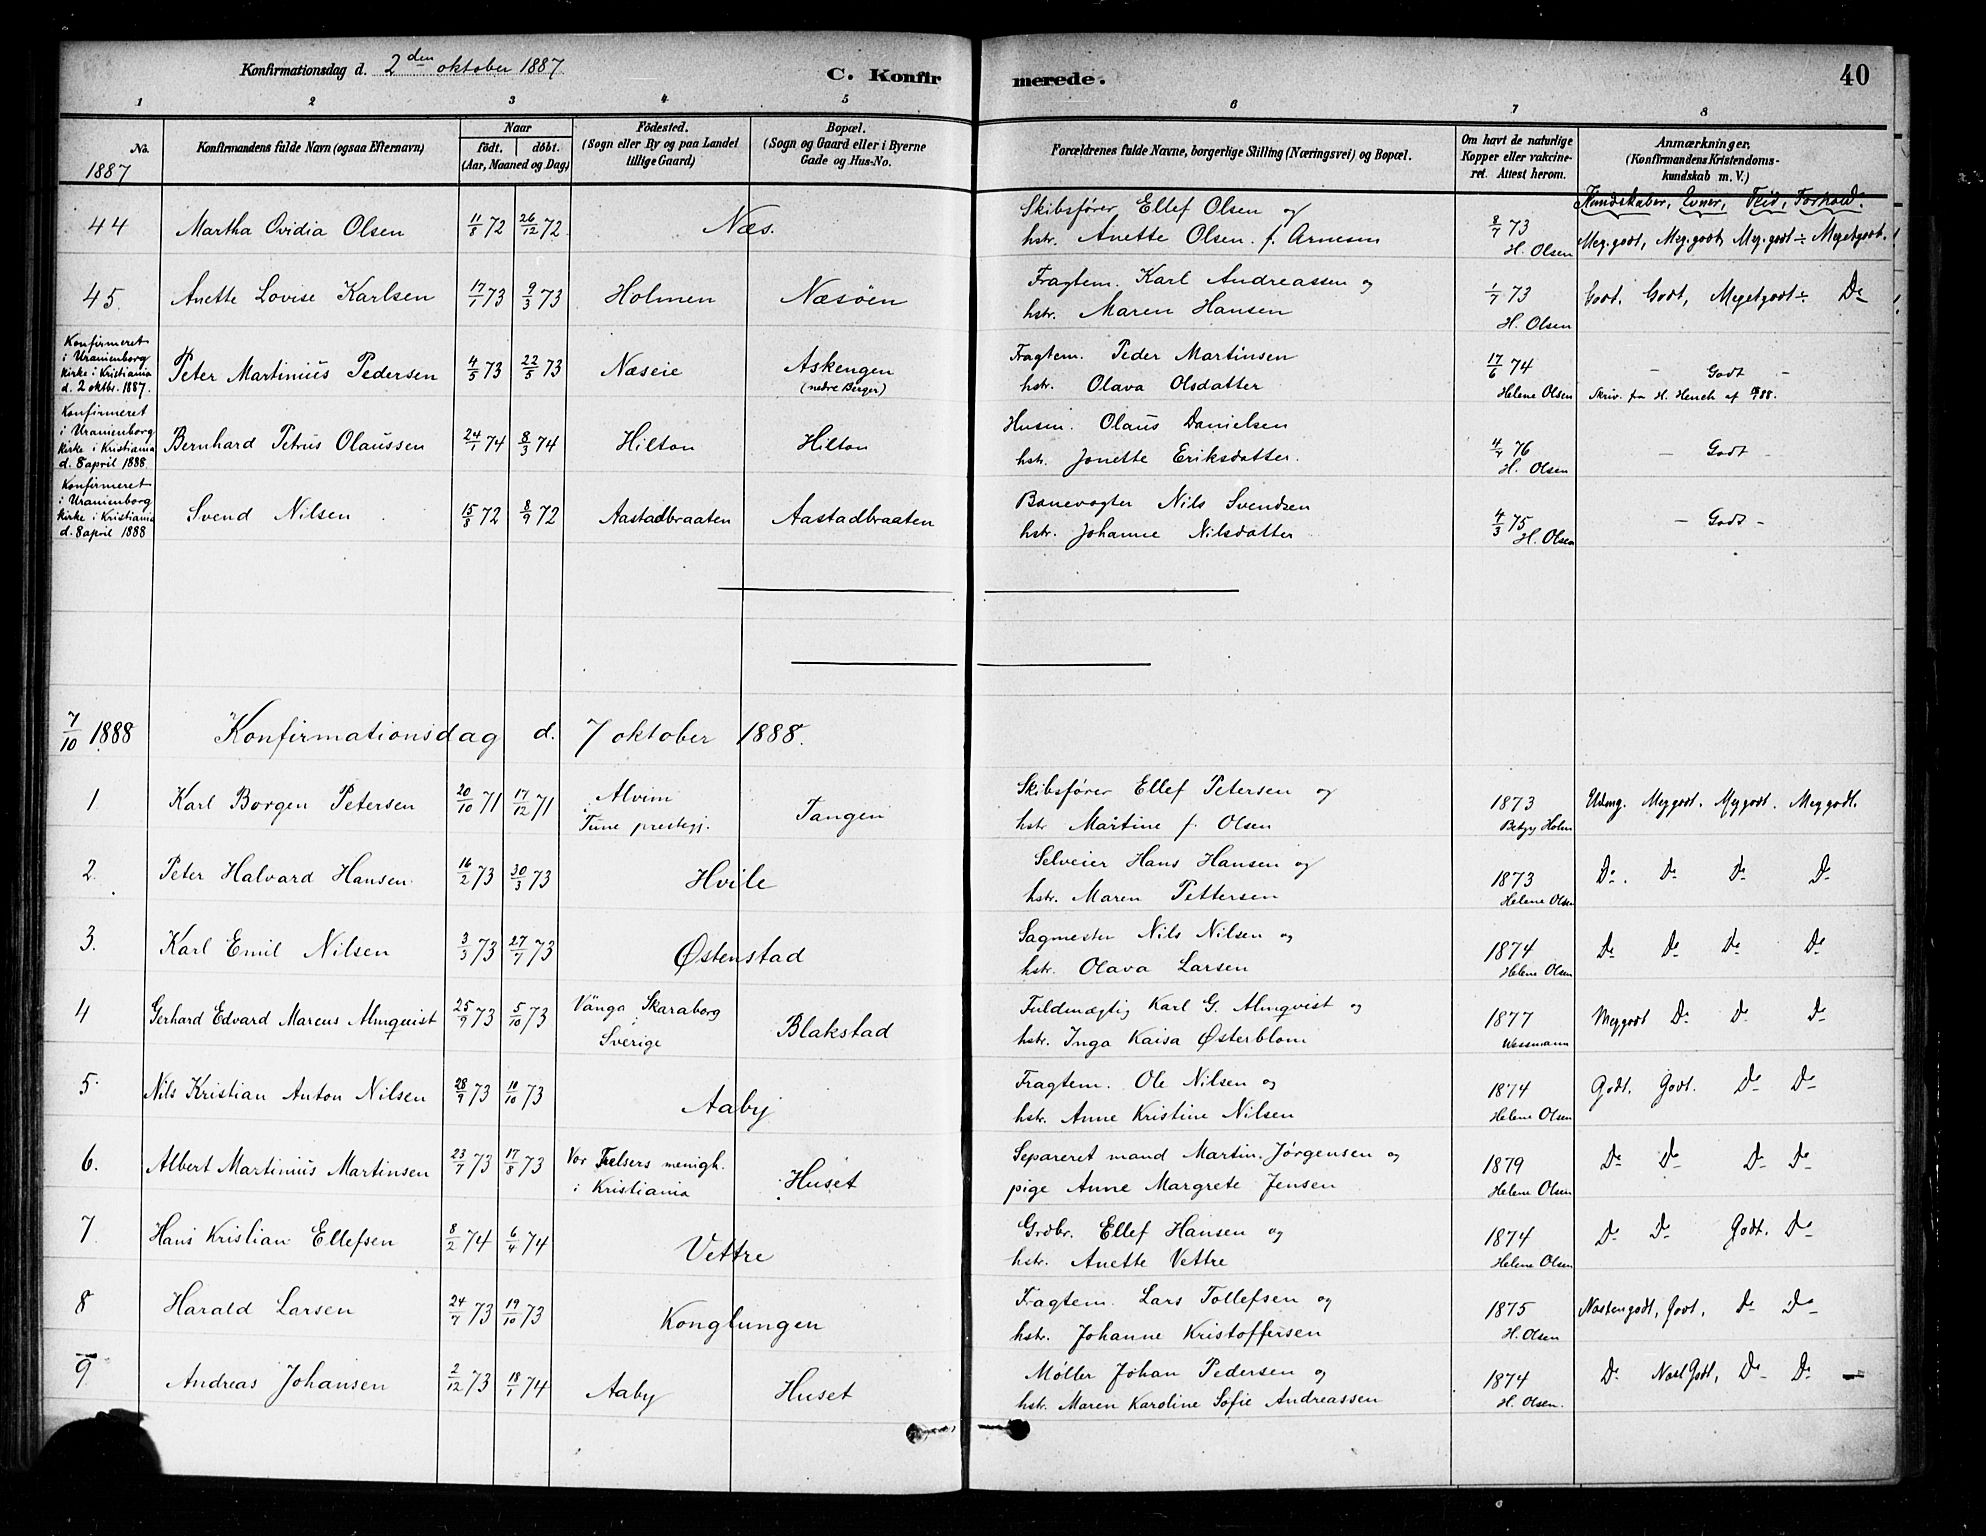 Konfirmationsdag d. 2den oktober 1887
C. Konfirmerede. 40
1 2 3 4 5 6 7 8
No. Konfirmandens fulde Navn (ogsaa Efternavn) Naar født. døbt. (Aar, Maaned og Dag) Fødested. (Sogn eller By og paa Landet tillige Gaard) Bopæl. (Sogn og Gaard eller i Byerne Gade og Hus-No. Forældrenes fulde Navne, borgerlige Stilling (Næringsvei) og Bopæl. Om havt de naturlige Kopper eller vakcineret. Attest herom. Anmærkninger. (Konfirmandens Kristendomskundskab m. V.)
1887
Kundskaber, Evner, Flid, Forhold.
44 Martha Ovidia Olsen 11/8 72 26/12 72. Næs. Skibsfører Ellef Olsen og
hstr. Anette Olsen. f. Arnesen 8/7 73 H. Olsen Meg. godt, Meg. godt, Meg. godt ÷ Megetgodt.
45. Anette Lovise Karlsen 17/1 73 9/3 73 Holmen Næsøen Fragtem. Karl Andreassen og
hstr. Maren Hansen 1/7 73 H. Olsen Godt. Godt, Megetgodt ÷ Do
Konfirmeret i Uranienborg kirke i Kristiania d. 2 oktbr. 1887. Peter Martinius Pedersen 4/5 73 22/5 73 Næseie Askengen (nedre Berger) Fragtem. Peder Martinsen
hstr. Olava Olsdatter 17/6 74 Helene Olsen - Godt -
Skriv. fra H. Hench af 88.
Konfirmeret i Uranienborg kirke i Kristiania d. 8 april 1888. Bernhard Petrus Olaussen 24/1 74 8/3 74 Hilton Hilton Husm. Olaus Danielsen
hstr. Jonette Eriksdatter. 4/4 76 H. Olsen - Godt -
Konfirmeret i Uranienborg kirke i Kristiania d. 8 april 1888 Svend Nilsen 15/8 72 8/9 72 Aastadbraaten Aastadbraaten Banevogter Nils Svendsen
hstr. Johanne Nilsdatter 4/3 75 H. Olsen - Godt -
7/10 1888 Konfirmationsdag d. 7 oktober 1888.
1. Karl Borgen Petersen 20/10 71 17/12 71 Alvim i Tune prestegj. Tangen Skibsfører Ellef Petersen og
hstr Martine f. Olsen 1873 Betzy Holm Udmg. Meg godt. Meg godt. Meg godt.
2. Peter Halvard Hansen. 16/2 73 30/3 73 Hvile Selveier Hans Hansen og
hstr. Maren Pettersen 1873 Helene Olsen Do. Do Do Do
3. Karl Emil Nilsen 3/3 73 27/7 73 Østenstad Sagmester Nils Nilsen og
hstr. Olava Larsen 1874 Helene Olsen Do Do Do Do
4 Gerhard Edvard Marcus Almquist 25/9 73 5/10 73 Vånga Skaraborg Sverige Blakstad Fuldmægtig Karl G. Almqvist og
hstr. Inga Kaisa Østerblom 1877 Wessmann Meg godt Do Do Do
5. Nils Kristian Anton Nilsen 28/9 73 10/10 73 Aaby Fragtem. Ole Nilsen og
hstr. Anne Kristine Nilsen 1874 Helene Olsen Godt. Godt. Do Do
6. Albert Martinius Martinsen 23/7 73 17/8 73 Vor Frelsers menigh. i Kristiania Huset Separeret mand Martin Jørgensen og
pige Anne Margrete Jensen 1879 Helene Olsen Do Do Do Do
7. Hans Kristian Ellefsen 8/2 74 6/4 74 Vettre Grdbr. Ellef Hansen og
hstr. Anette Vettre 1874 Helene Olsen Do Do Godt. Do
8 Harald Larsen 24/7 73 19/10 73 Konglungen Fragtem. Lars Tollefsen og
hstr. Johanne Kristoffersen 1875 H. Olsen Næstengodt, Godt, Do Do
9 Andreas Johansen 2/12 73 18/1 74 Aaby Huset Møller Johan Pedersen og
hstr. Maren Karoline Sofie Andreassen 1874 H. Olsen. Do Næst Godt, Do Do